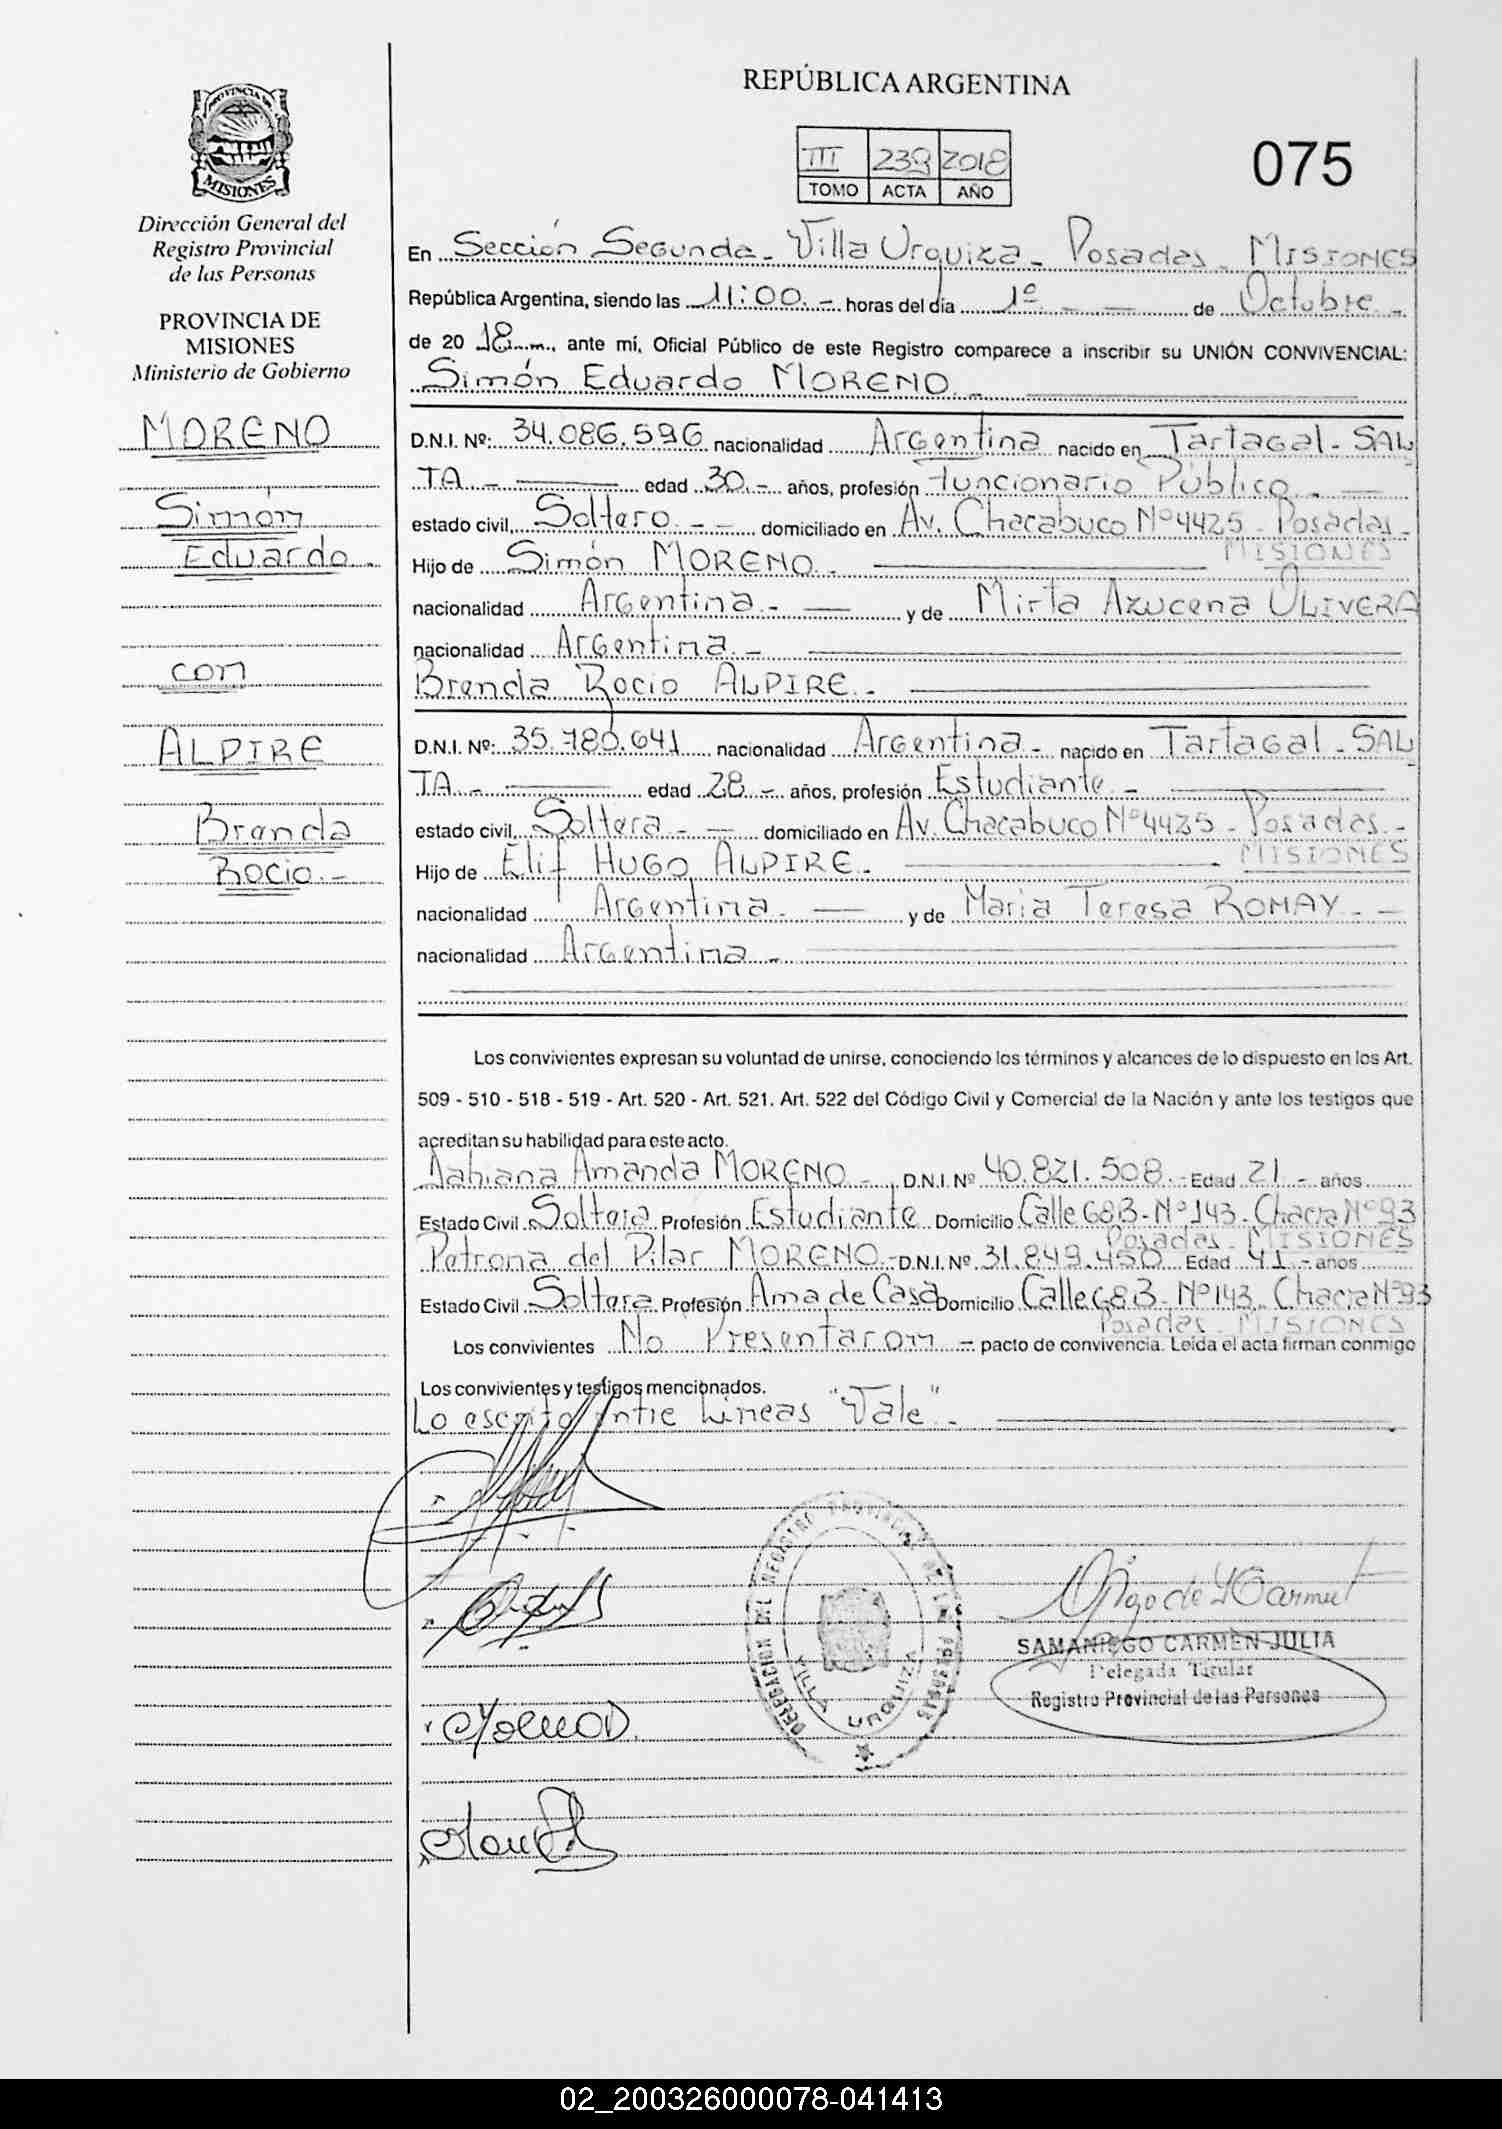 REPÚBLICA ARGENTINA
PROVINCIA DE
MISIONES
III 239 2018
TOMO ACTA AÑO
075
Dirección General del
Registro Provincial
de las Personas
PROVINCIA DE
MISIONES
Ministerio de Gobierno
MORENO
Simón
Eduardo.
con
ALPIRE
Brenda
Rocio.-
En Sección Segunda - Villa Urquiza - Posadas - MISIONES
República Argentina, siendo las 11:00.- horas del día 1º - - de Octubre.-
de 20 18.-, ante mí, Oficial Público de este Registro comparece a inscribir su UNIÓN CONVIVENCIAL:
Simón Eduardo MORENO.-
D.N.I. Nº: 34.086.596 nacionalidad Argentina nacido en Tartagal - SAL
TA.- edad 30.- años, profesión Funcionario Público.-
estado civil, Soltero.- - domiciliado en Av. Chacabuco Nº 4425 - Posadas -
MISIONES
Hijo de Simón MORENO.-
nacionalidad Argentina.- y de Mirta Azucena OLIVERA
nacionalidad Argentina.-
Brenda Rocio ALPIRE.-
D.N.I. Nº: 35.780.641 nacionalidad Argentina.- nacido en Tartagal - SAL
TA.- edad 28.- años, profesión Estudiante.-
estado civil, Soltera.- - domiciliado en Av. Chacabuco Nº 4425 - Posadas.-
MISIONES
Hijo de Elif HUGO ALPIRE.-
nacionalidad Argentina.- y de Maria Teresa ROMAY.- -
nacionalidad Argentina.-
Los convivientes expresan su voluntad de unirse, conociendo los términos y alcances de lo dispuesto en los Art.
509 - 510 - 518 - 519 - Art. 520 - Art. 521. Art. 522 del Código Civil y Comercial de la Nación y ante los testigos que
acreditan su habilidad para este acto.
Amanda MORENO.- D.N.I. Nº 40.821.508.- Edad 21.- años
Estado Civil Soltera Profesión Estudiante Domicilio Calle 68B - Nº 143 - Chacra Nº 93
Posadas - MISIONES
Petrona del Pilar MORENO.- D.N.I. Nº 31.849.450 Edad 41.- años
Estado Civil Soltera Profesión Ama de Casa Domicilio Calle 68B - Nº 143 - Chacra Nº 93
Posadas - MISIONES
Los convivientes No Presentaron - pacto de convivencia. Leída el acta firman conmigo
Los convivientes y testigos mencionados.
Lo escrito entre Lineas "Vale".-
DELEGACION DEL REGISTRO PROVINCIAL DE LAS PERSONAS
VILLA URQUIZA
SAMANIEGO CARMEN JULIA
Delegada Titular
Registro Provincial de las Personas
02_200326000078-041413